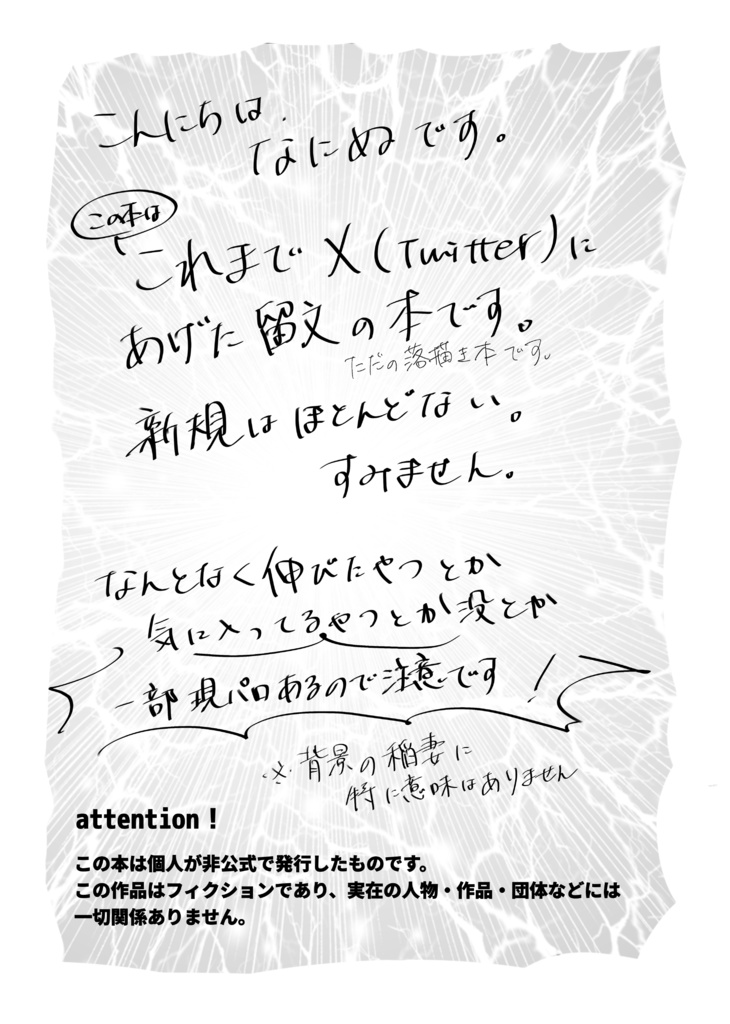 こんにちは.
なにぬです。
この本は
これまでX(Twitter)に
あげた留文の本です。
ただの落描き本です。
新規はほとんどない。
すみません。
なんとなく伸びたやつとか
気に入ってるやつとか没とか
一部現パロあるので注意です!
※背景の稲妻に
特に意味はありません
attention!
この本は個人が非公式で発行したものです。
この作品はフィクションであり、実在の人物・作品・団体などには
一切関係ありません。